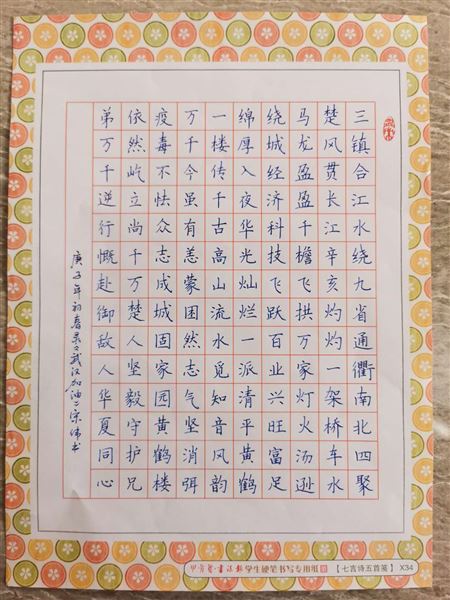 三镇合江水绕九省通衢南北四聚
楚风贯长江辛亥灼灼一架桥车水
马龙盈盈千檐飞拱万家灯火汤逊
绕城经济科技飞跃百业兴旺富足
绵厚入夜华光灿烂一派清平黄鹤
一楼传千古高山流水觅知音风韵
万千今虽有恙蒙困然志气坚消弭
疫毒不怯众志成城固家园黄鹤楼
依然屹立尚千万楚人坚毅守护兄
弟万千逆行慨赴御敌人华夏同心
庚子年初春录《武汉加油》宋伟书
书法报学生硬笔书写专用纸 【七言诗五首笺】 X34